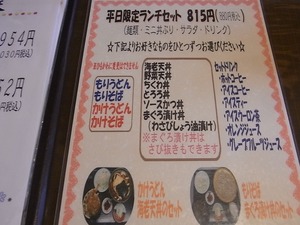 954円
平日限定ランチセット 815円
(麺類・ミニ丼ぶり・サラダ・ドリンク)
☆下記よりお好きなものをひとつずつお選びください☆
もりうどん
もりそば
かけうどん
かけそば
海老天丼
野菜天丼
ちくわ丼
とろろ丼
ソースかつ丼
まぐろ漬け丼
(わさびしょう油漬け)
※まぐろ漬け丼は
さび抜きもできます
セットドリンク
・ホットコーヒー
・アイスコーヒー
・アイスティー
・アイスウーロン茶
・オレンジジュース
・グレープフルーツジュース
かけうどん
海老天丼のセット
もりそば
まぐろ漬け丼のセット